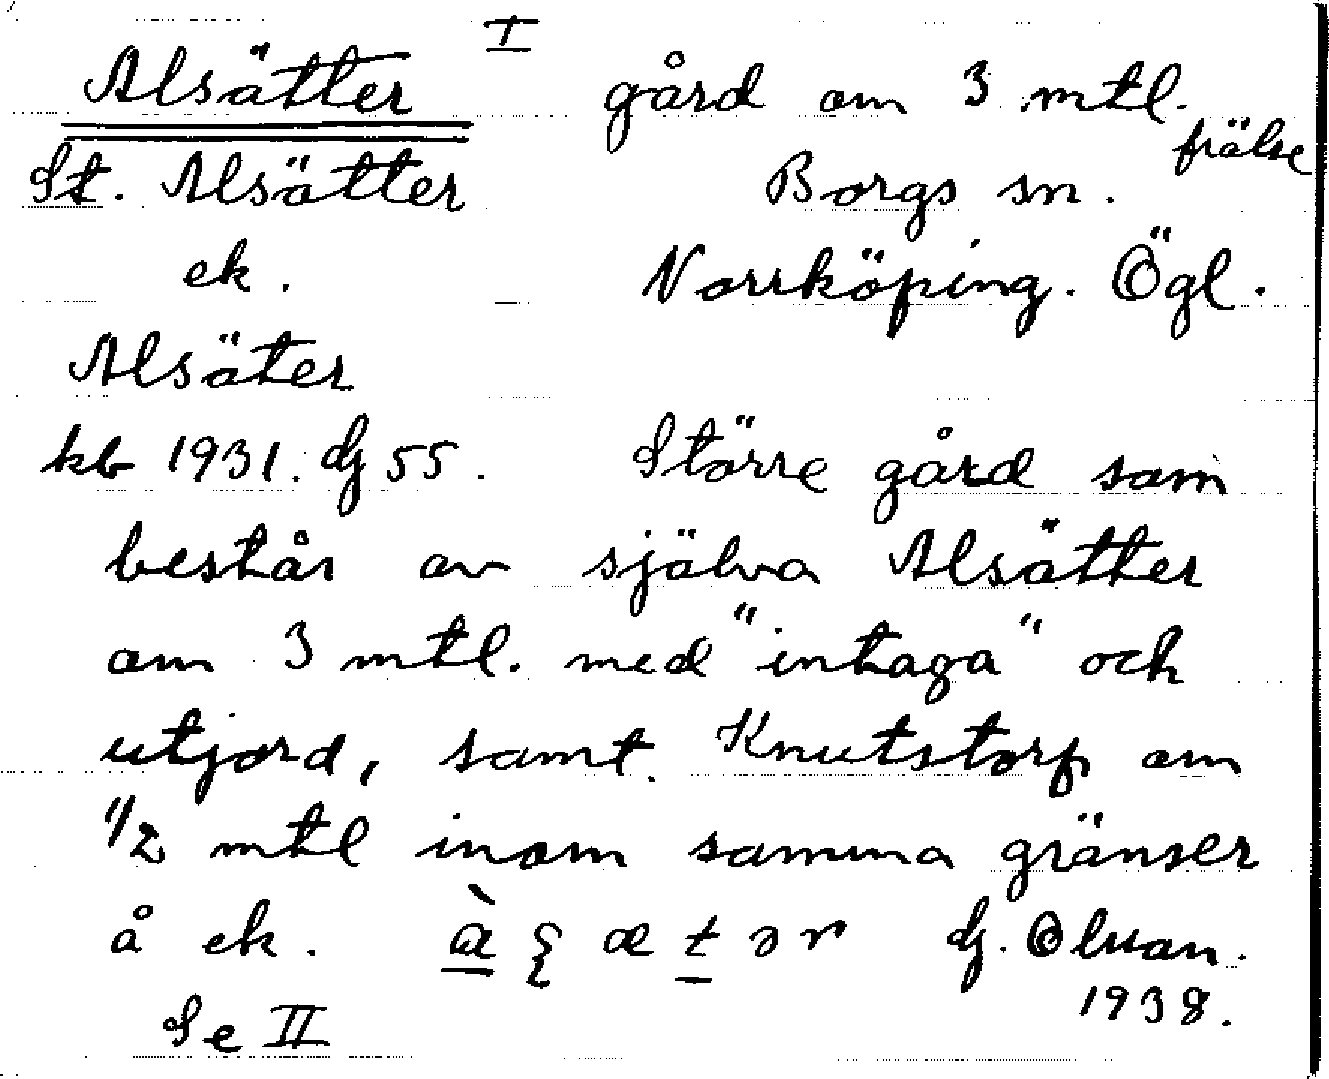 I
Alsätter gård om 3 mtl.
frälse
St. Alsätter Borgs sn.
ek. Norrköping. Ögl.
Alsäter
kb 1931. dj 55. Större gård som
består av själva Alsätter
om 3 mtl. med "intaga" och
utjord, samt Knutstorp om
1/2 mtl inom samma gränser
å ek. dj.
1938.
Se II